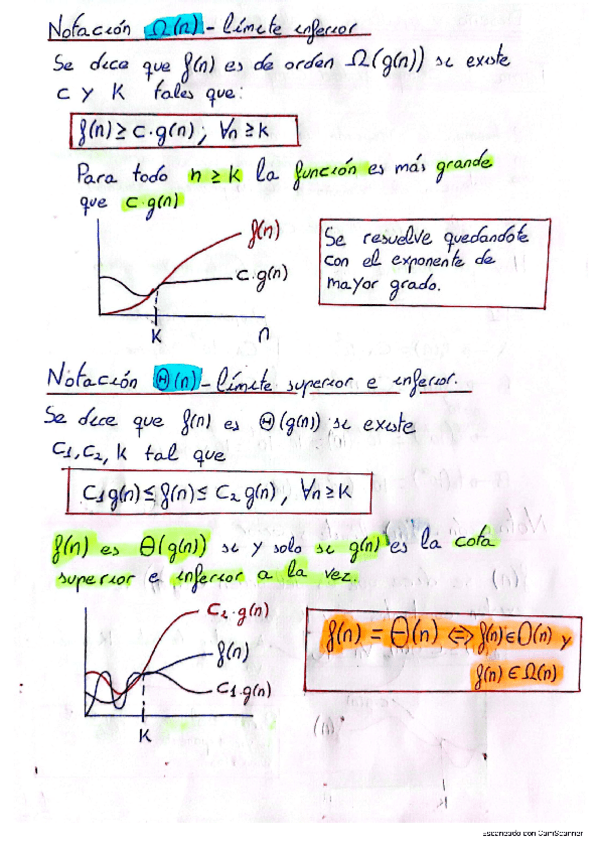 Notación Ω(n) - límite inferior
Se dice que f(n) es de orden Ω(g(n)) si existe
c y K tales que:
f(n) ≥ c·g(n); ∀n ≥ k
Para todo n ≥ k la función es más grande
que c·g(n)
f(n)
c·g(n)
K
n
Se resuelve quedandote
con el exponente de
mayor grado.
Notación Θ(n) - límite superior e inferior.
Se dice que f(n) es Θ(g(n)) si existe
C1, C2, K tal que
C1g(n) ≤ f(n) ≤ C2 g(n), ∀n ≥ K
f(n) es Θ(g(n)) si y solo si g(n) es la cota
superior e inferior a la vez.
C2·g(n)
f(n)
C1·g(n)
K
f(n) = Θ(n) ⇔ f(n) ∈ O(n) y
f(n) ∈ Ω(n)
Escaneado con CamScanner